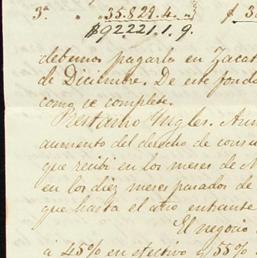 3ª " 35.829.4. "
$92221.1.9.
debemos pagarla en Zacat
de Diciembre. De este fondo
como se complete.
Prestamo Ingles. Aun
aumento del derecho de consu
que recibi en los meses de
en los diez meses pasados de
que hasta el año entrante
El negocio
á 45% en efectivo y 55%